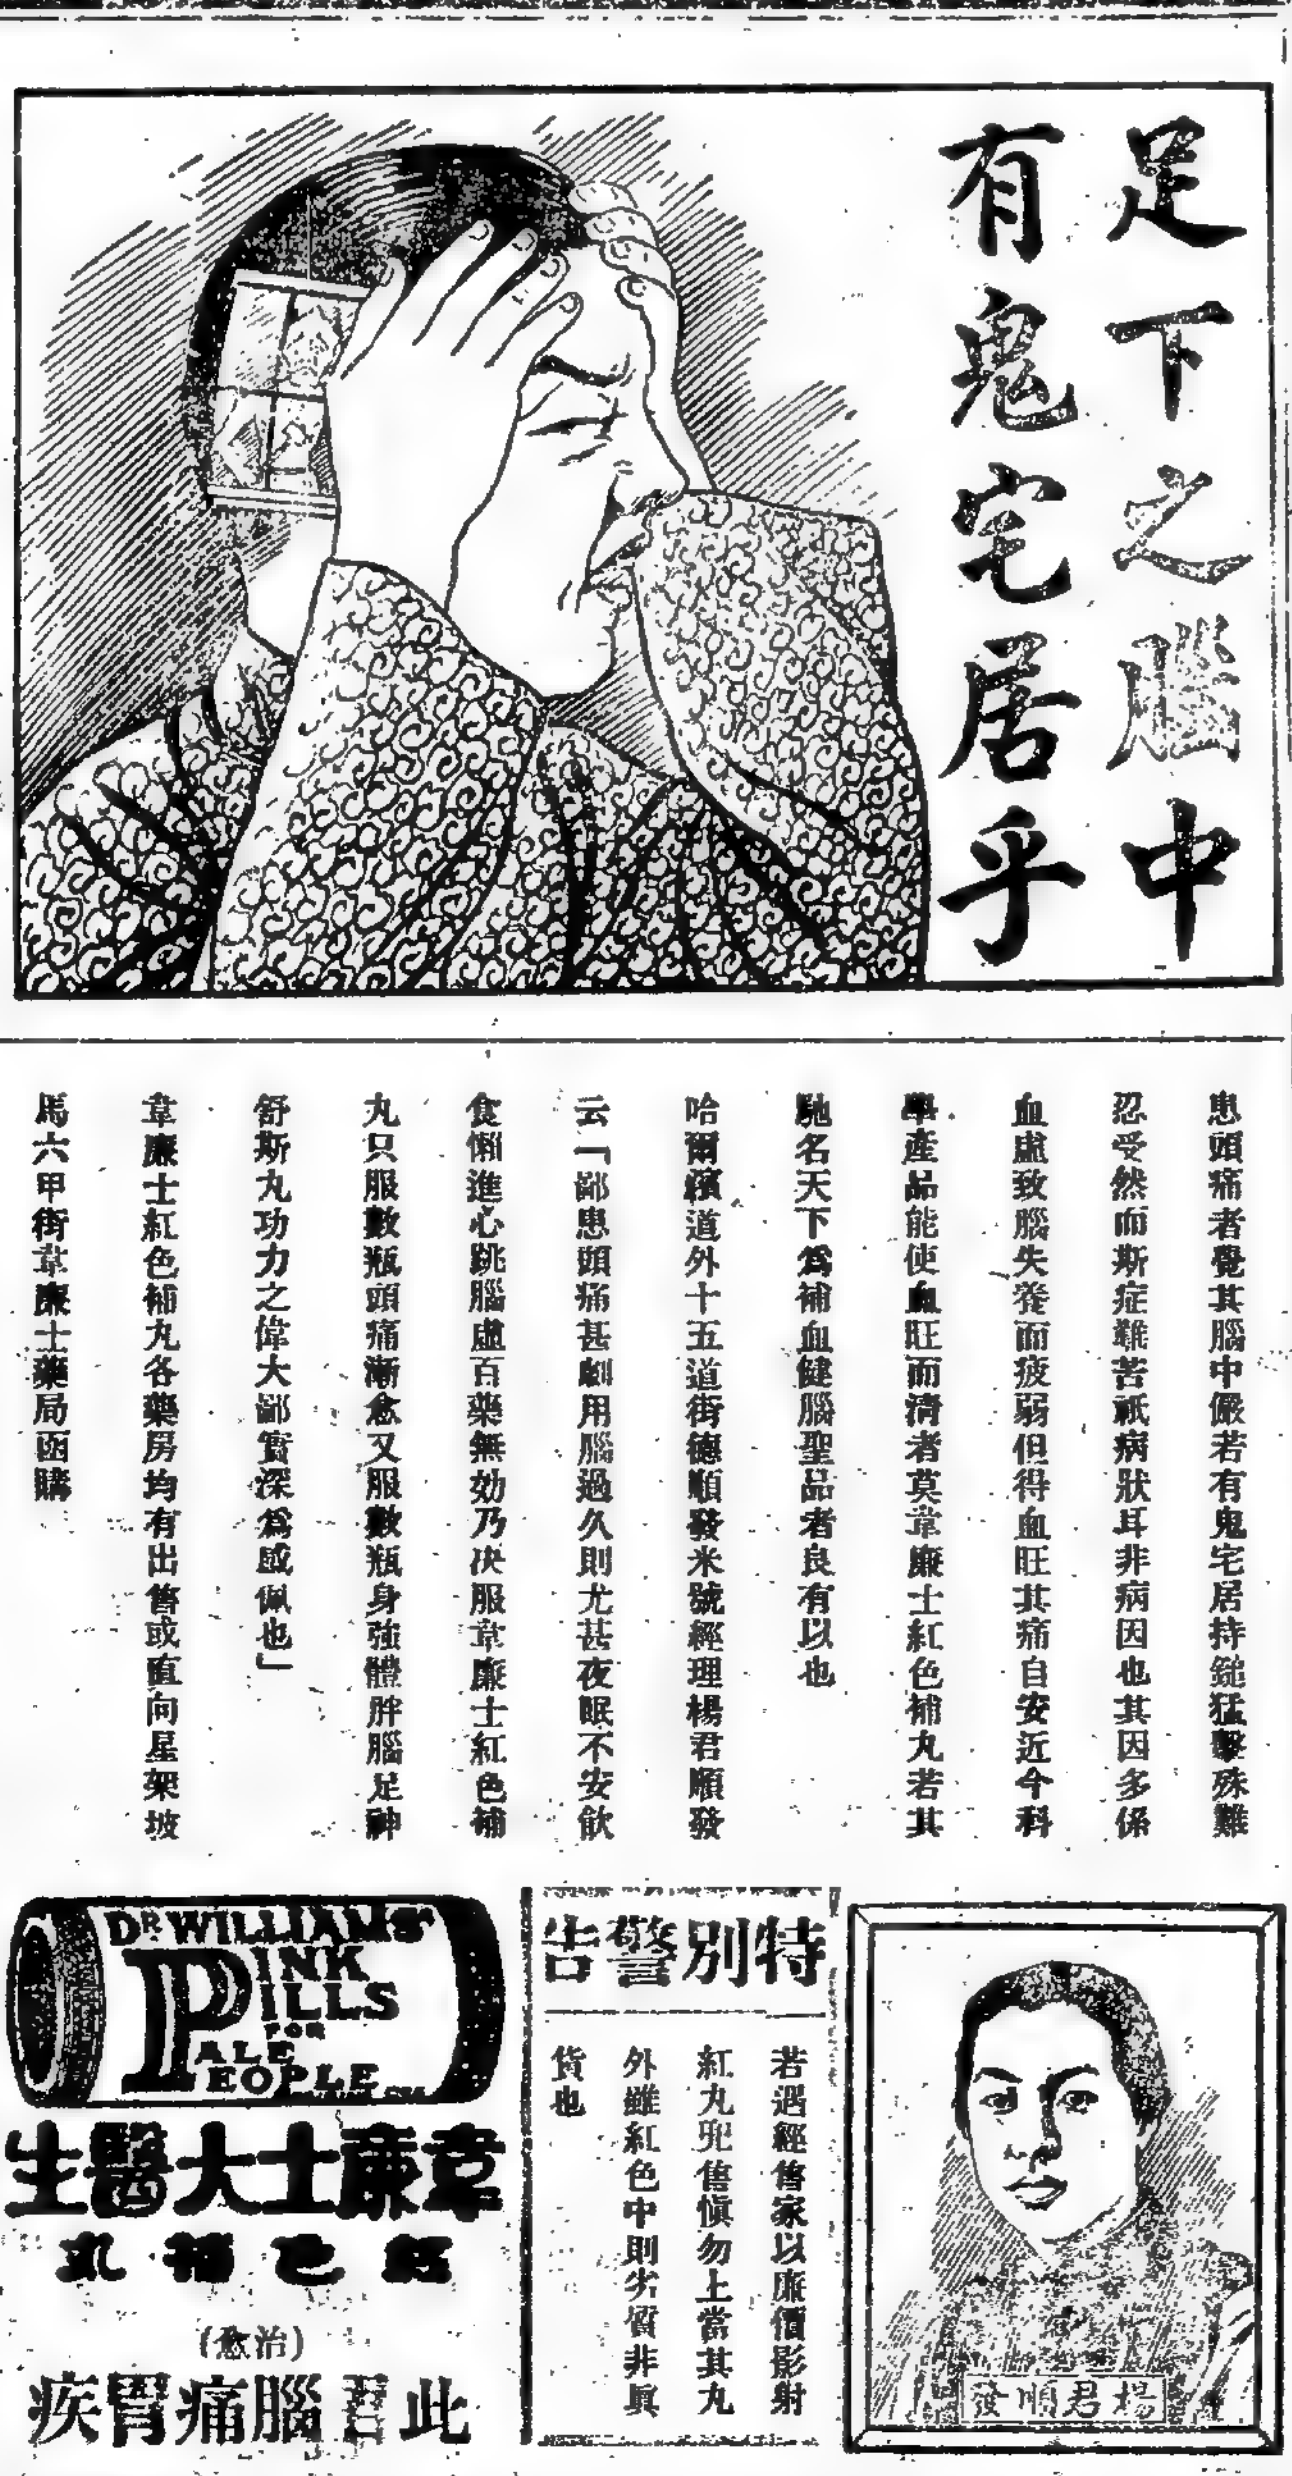 足下之腦中
有鬼宅居乎
患頭痛者覺其腦中儼若有鬼宅居持鎚猛擊殊難
忍受然而斯症難苦祇病狀耳非病因也其因多係
血虛致腦失養而疲弱但得血旺其痛自安近今科
學產品能使血旺而清者莫韋廉士紅色補丸若其
馳名天下爲補血健腦聖品者良有以也
哈爾濱道外十五道街德順發米號經理楊君順發
云「鄙患頭痛甚劇用腦過久則尤甚夜眠不安飲
食懶進心跳腦虛百藥無効乃决服韋廉士紅色補
丸只服數瓶頭痛漸愈又服數瓶身強體胖腦足神
舒斯丸功力之偉大鄙實深爲感佩也」
韋廉士紅色補丸各藥房均有出售或直向星架坡
馬六甲街韋廉士藥局函購
楊君順發
特別警告
若遇經售家以廉價影射
紅丸兜售愼勿上當其丸
外雖紅色中則劣質非眞
貨也
DR WILLIAMS'
PINK
PILLS
FOR
PALE
PEOPLE
韋廉士大醫生
紅色補丸
(治愈)
此君腦痛胃疾